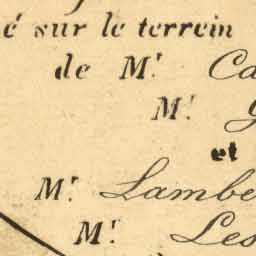 é sur le terrein
de Mr. Ca
Mr. G
et
Mr. Lambe
Mr. Les